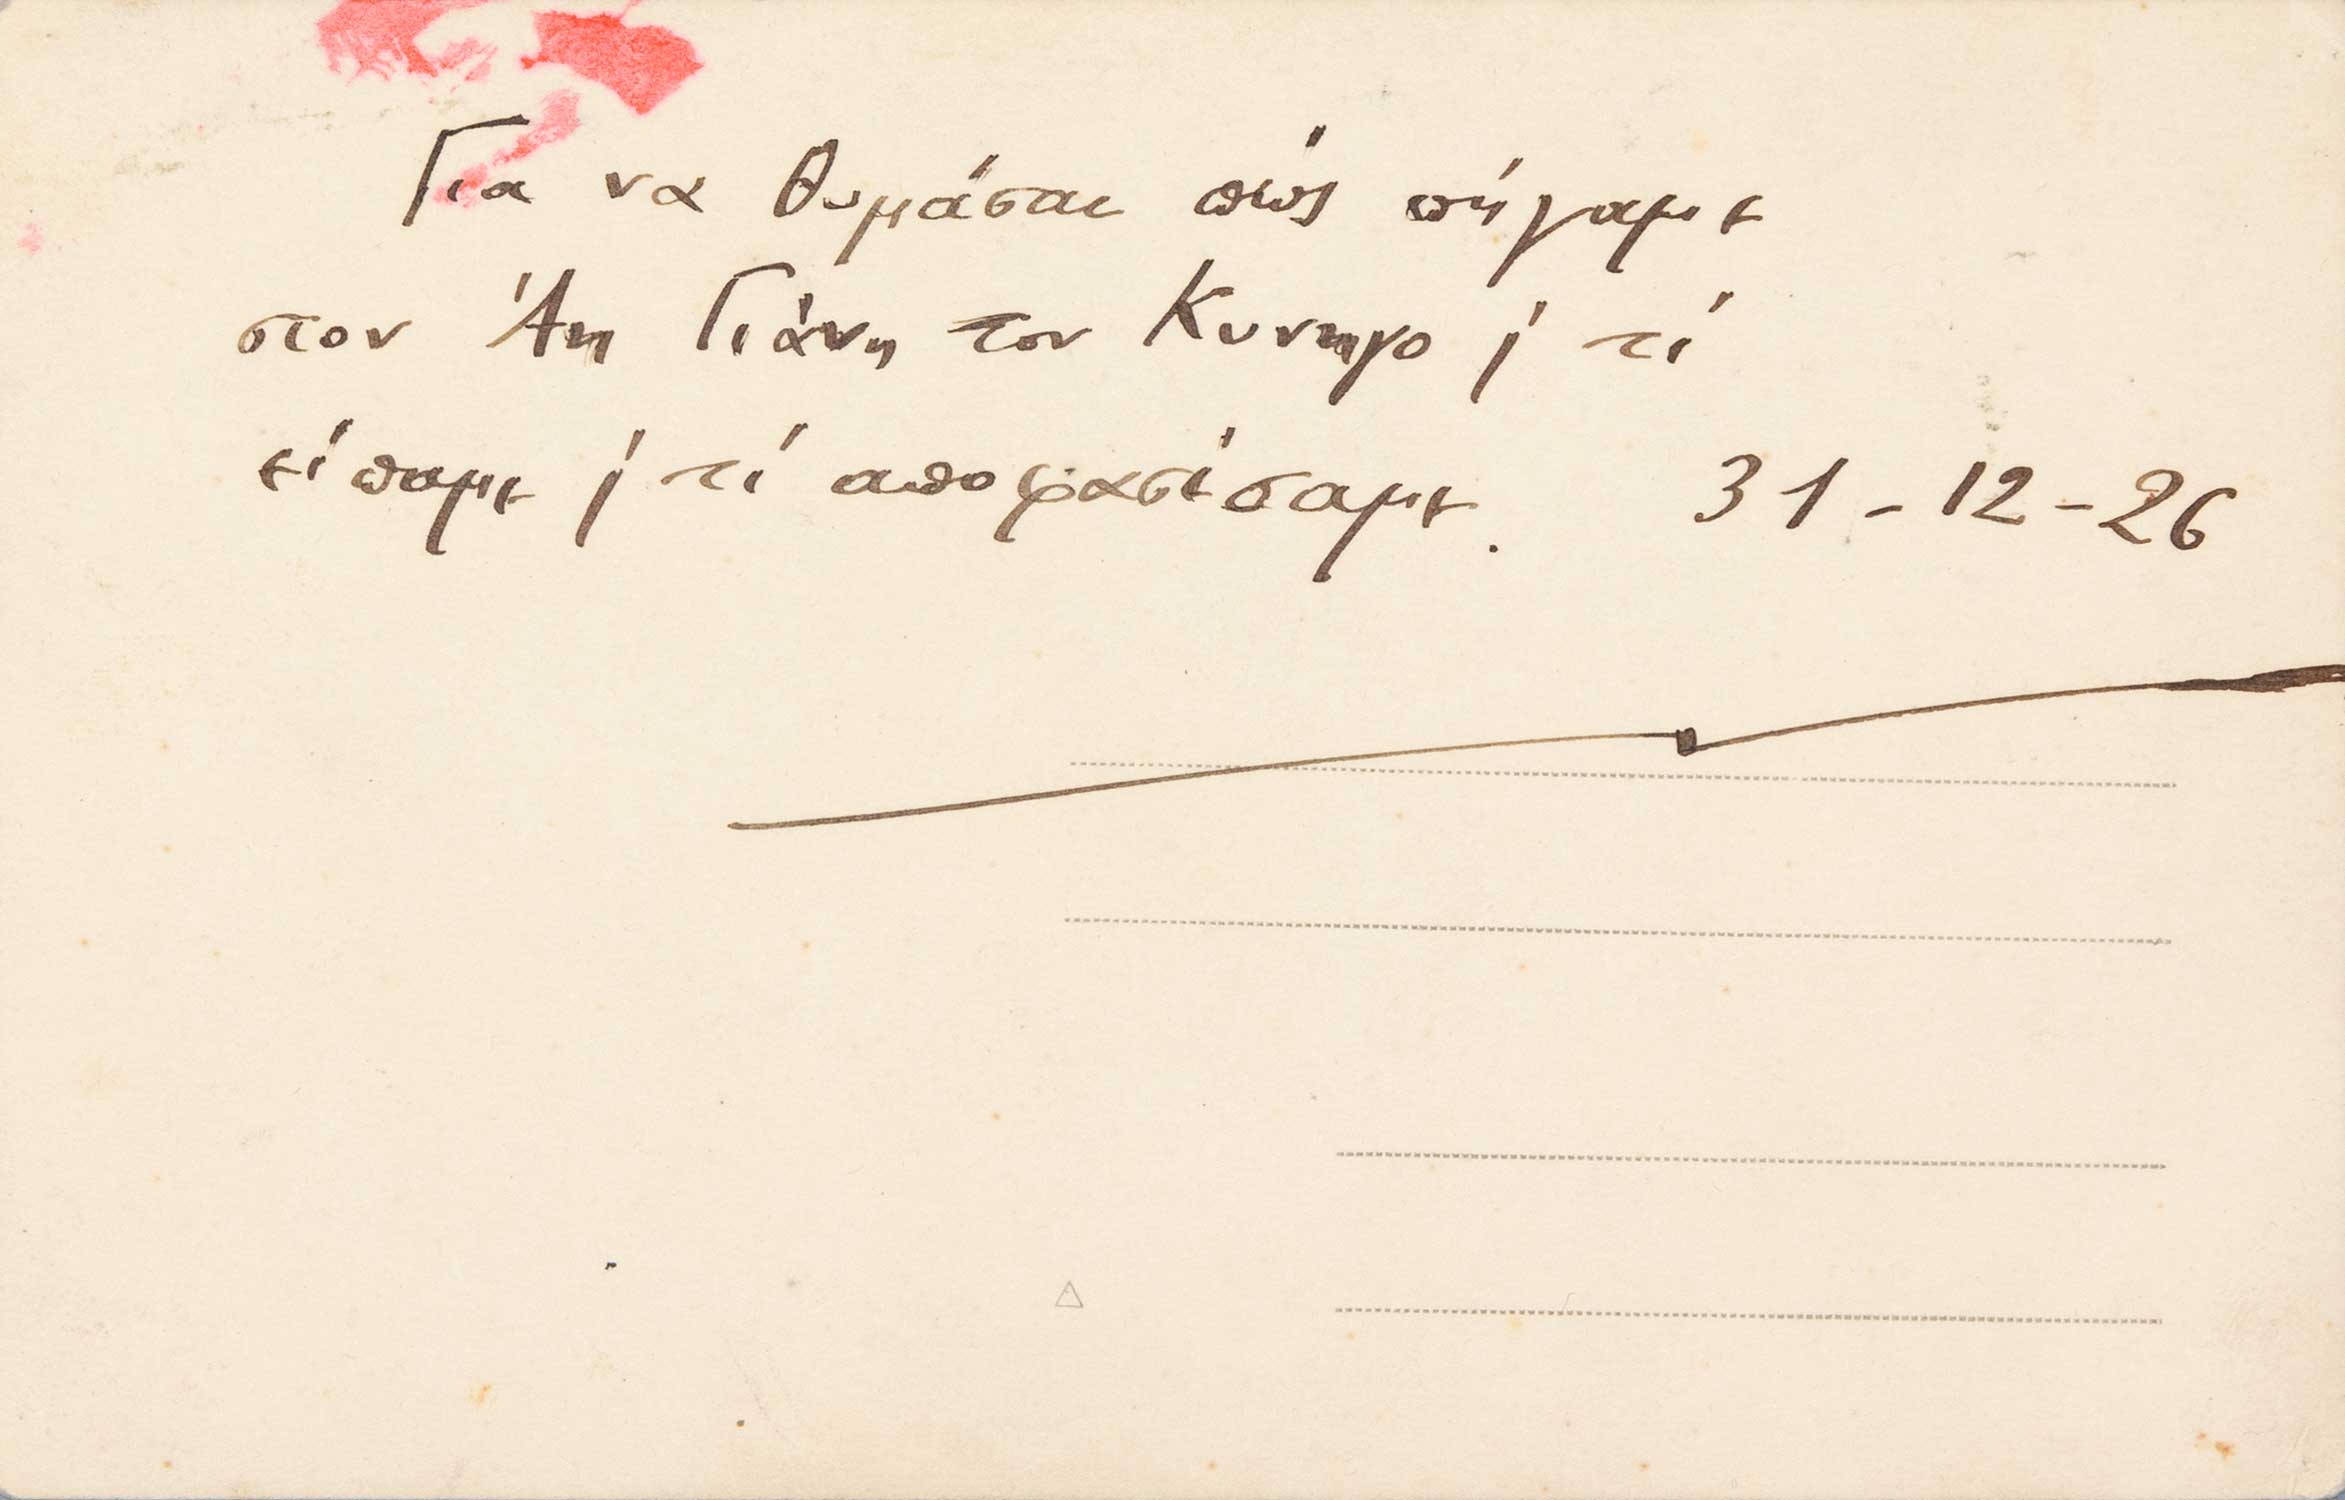 Για να θυμάσαι πώς πήγαμε
στον Άη Γιάνη τον Κυνηγο ϳ τί
είπαμε ϳ τί αποφασίσαμε. 31-12-26